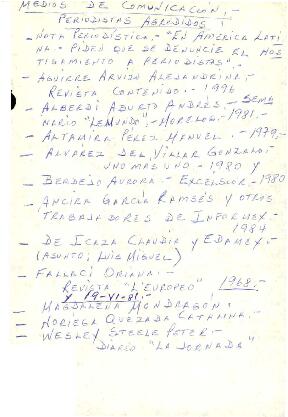 MEDIOS DE COMUNICACIÓN.-
PERIODISTAS AGREDIDOS:
- NOTA PERIODÍSTICA.- "EN AMERICA LATI-
NA.- PIDEN QUE SE DENUNCIE EL HOS
TIGAMIENTO A PERIODISTAS".-
- AGUIRRE ARVIZO ALEJANDRINA.-
REVISTA CONTENIDO.- 1996
- ALBERDI ABURTO ANDRÉS.- SEMA
NARIO "LEMUNDO".- MORELOS.- 1981.-
- ALTAMIRA PÉREZ MANUEL.- 1979.-
- ALVAREZ DEL VILLAR GONZALO:
UNO MAS UNO.- 1980 Y
- BERDEJO AURORA.- EXCELSIOR.- 1980
- ANCIRA GARCÍA RAMSÉS Y OTROS
TRABAJADORES DE INFORMEX.-
1984
- DE ICAZA CLAUDIA Y EDAMEX.-
(ASUNTO: LUIS MIGUEL)
- FALLACI ORIANA.-
REVISTA "L'EUROPEO" 1968.-
Y 19-VI-81.-
- MAGDALENA MONDRAGON:
- NORIEGA QUEZADA CATALINA.-
- WESLEY STEELE PETER:-
DIARIO "LA JORNADA"